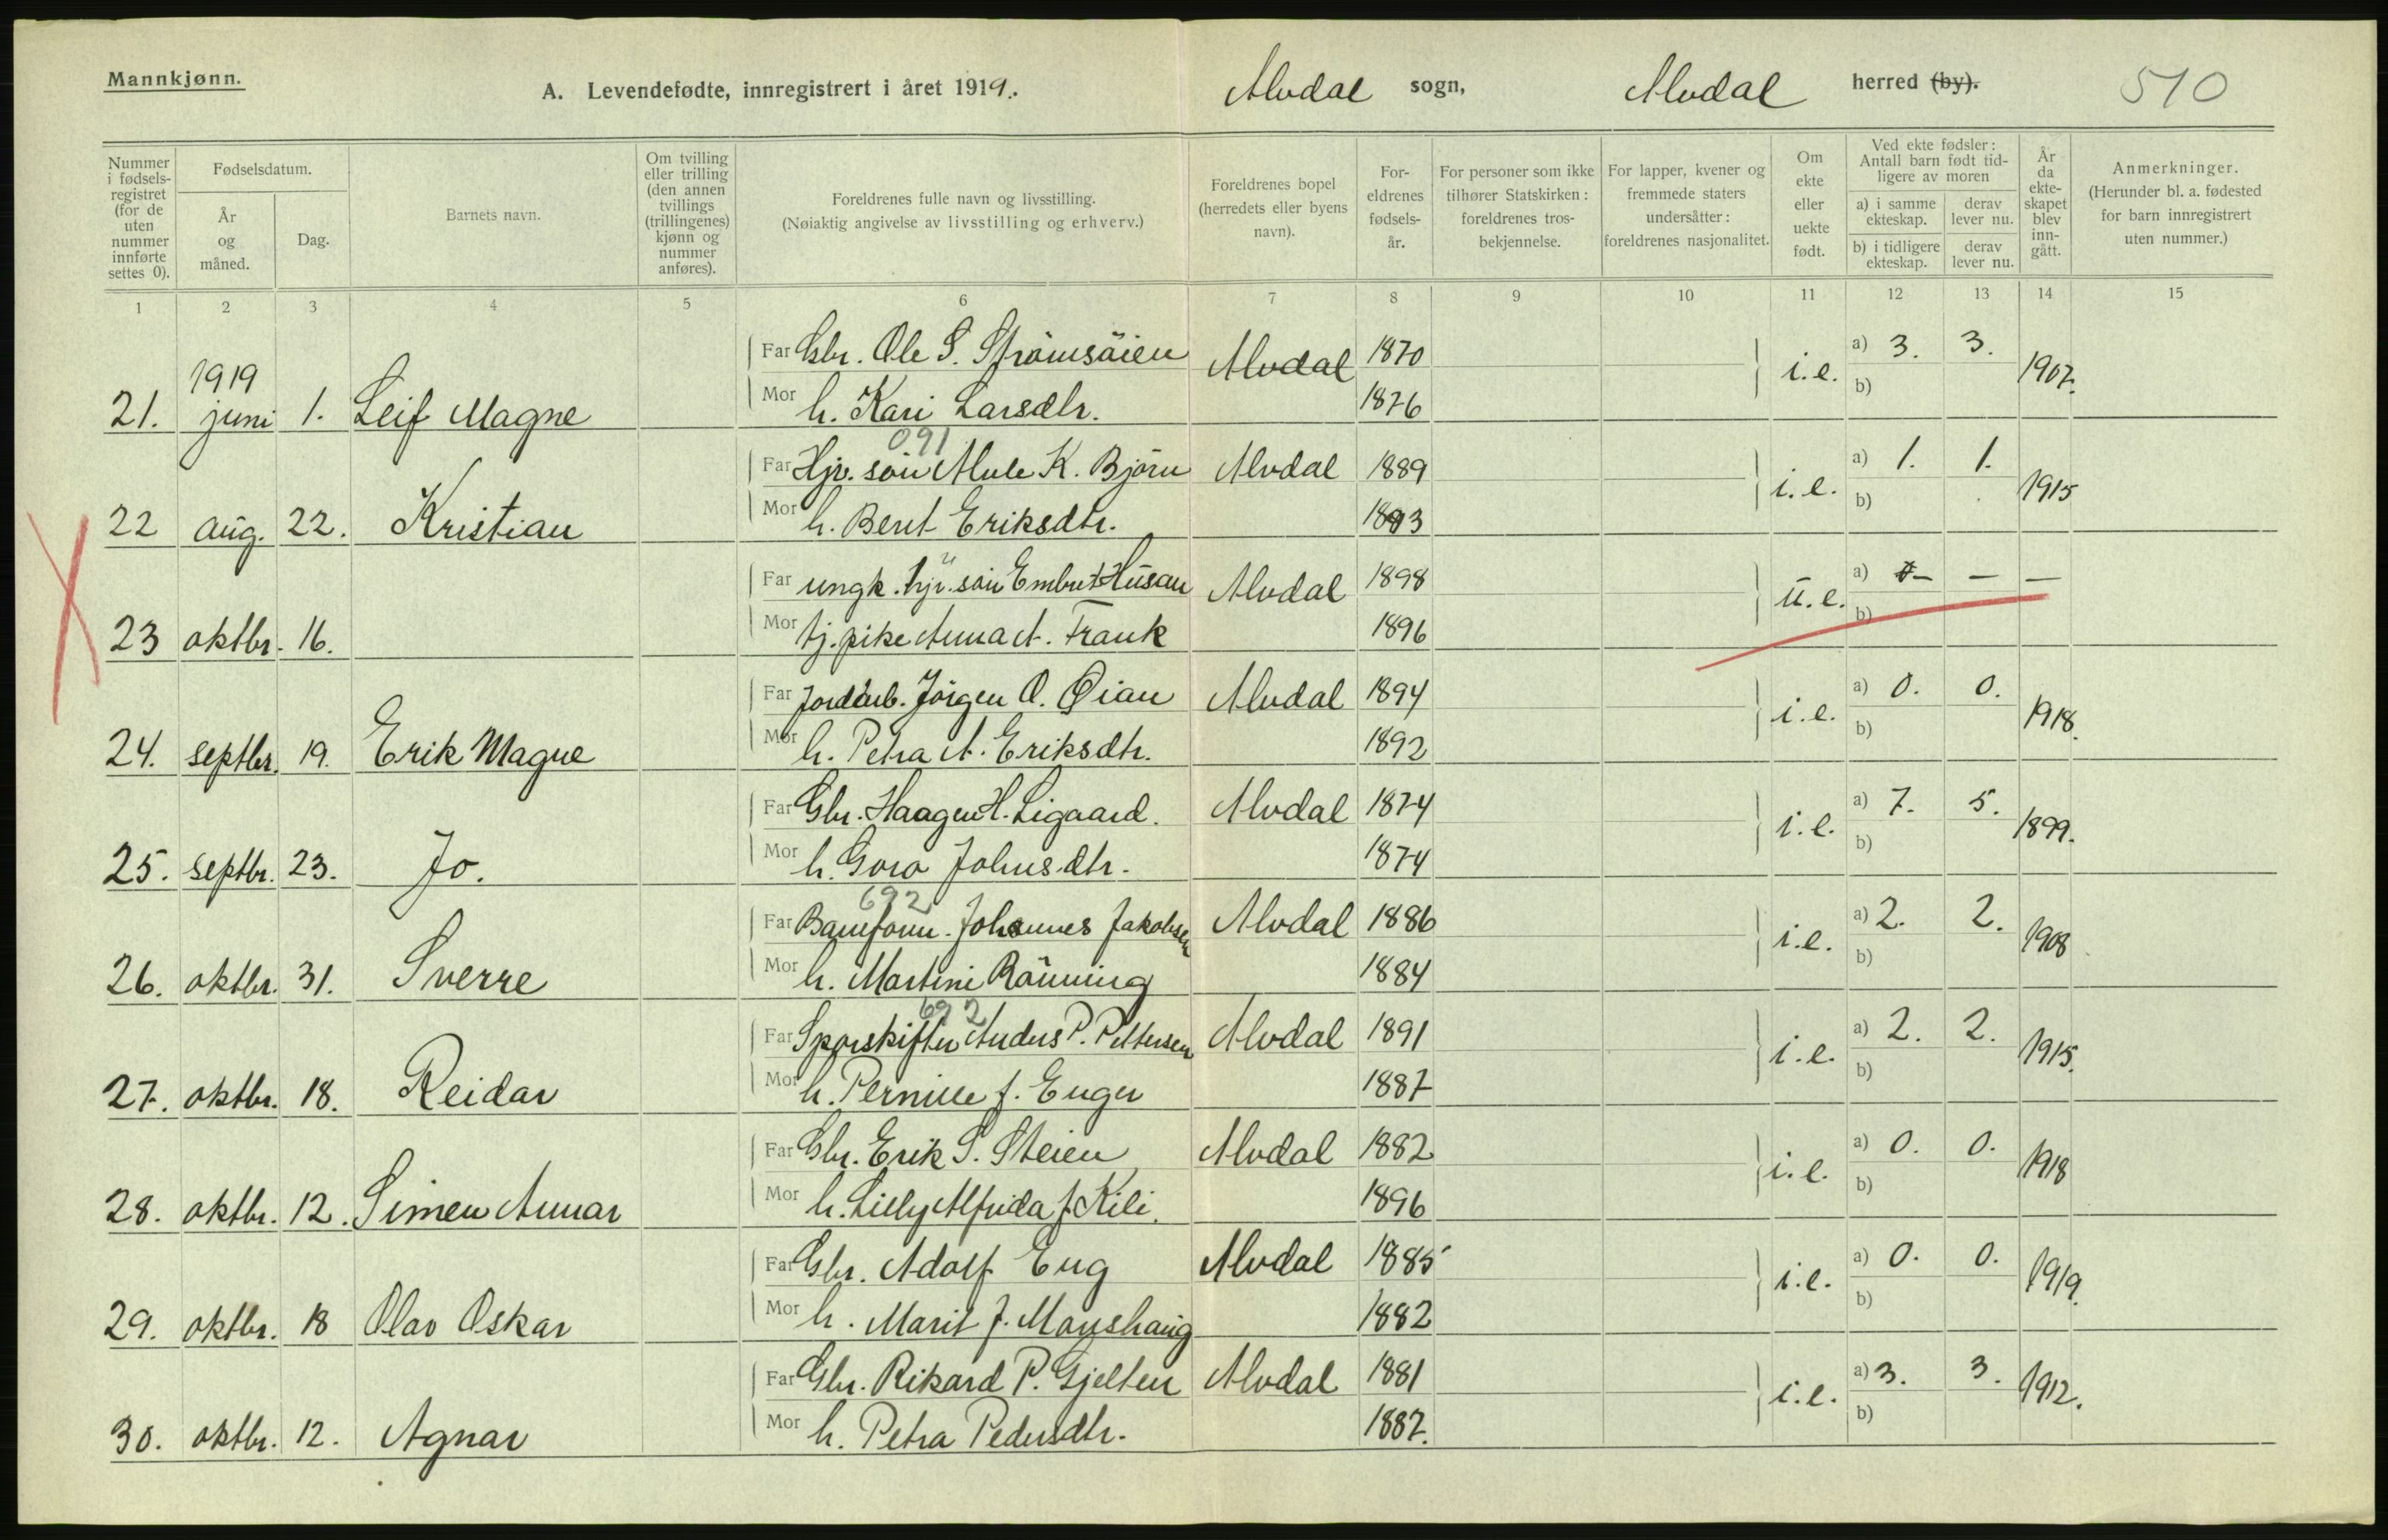 Mannkjønn.
A. Levendefødte, innregistrert i året 1919.
Alvdal sogn, Alvdal herred (by). 510
Nummer i fødsels-registret (for de uten nummer innførte settes 0).
Fødselsdatum.
År og måned.
Dag.
Barnets navn.
Om tvilling eller trilling (den annen tvillings (trillingenes) kjønn og nummer anføres).
Foreldrenes fulle navn og livsstilling.
(Nøiaktig angivelse av livsstilling og erhverv.)
Foreldrenes bopel (herredets eller byens navn).
For-eldrenes fødsels-år.
For personer som ikke tilhører Statskirken: foreldrenes tros-bekjennelse.
For lapper, kvener og fremmede staters undersåtter: foreldrenes nasjonalitet.
Om ekte eller uekte født.
Ved ekte fødsler: Antall barn født tid-ligere av moren
a) i samme ekteskap. derav lever nu.
b) i tidligere ekteskap. derav lever nu.
År da ekte-skapet blev inn-gått.
Anmerkninger.
(Herunder bl. a. fødested for barn innregistrert uten nummer.)
1 2 3 4 5 6 7 8 9 10 11 12 13 14 15
Far Gbr. Ole S. Strömsöien Alvdal 1870 a) 3. 3.
1919
21. juni 1. Leif Magne Mor h. Kari Larsdtr. 1876 i.e. b) 1907.
091
Far Hjv. sön Mule K. Björn Alvdal 1889 a) 1. 1.
22 aug. 22. Kristian Mor h. Beret Eriksdtr. 1893 i.e. b) 1915
Far ungk. hjv. sön Embret Husan Alvdal 1898 a) – – –
23 oktbr. 16. Mor tj. pike Anna A. Frank 1896 u.e. b)
Far Jordarb. Jörgen O. Öian Alvdal 1894 a) 0. 0.
24. septbr. 19. Erik Magne Mor h. Petra A. Eriksdtr. 1892 i.e. b) 1918.
Far Gbr. Haagen H. Ligaard. Alvdal 1874 a) 7. 5.
25. septbr. 23. Jo. Mor h. Goro Johnsdtr. 1874 i.e. b) 1899.
692
Far Baneform. Johannes Jakobsen Alvdal 1886 a) 2. 2.
26. oktbr. 31. Sverre Mor h. Martini Rönning 1884 i.e. b) 1908
692
Far Sporskifter Anders P. Pettersen Alvdal 1891 a) 2. 2.
27. oktbr. 18. Reidar Mor h. Pernille f. Enger 1887 i.e. b) 1915.
Far Gbr. Erik S. Steien Alvdal 1882 a) 0. 0.
28. oktbr. 12. Simen Annar Mor h. Lilly Alfrida f. Kili. 1896 i.e. b) 1918
Far Gbr. Adolf Eng Alvdal 1885 a) 0. 0.
29. oktbr. 18 Olav Oskar Mor h. Marit J. Moushaug 1882 i.e. b) 1919.
Far Gbr. Rikard P. Gjelten Alvdal 1881 a) 3. 3.
30. oktbr. 12. Agnar Mor h. Petra Pedersdtr. 1887. i.e. b) 1912.